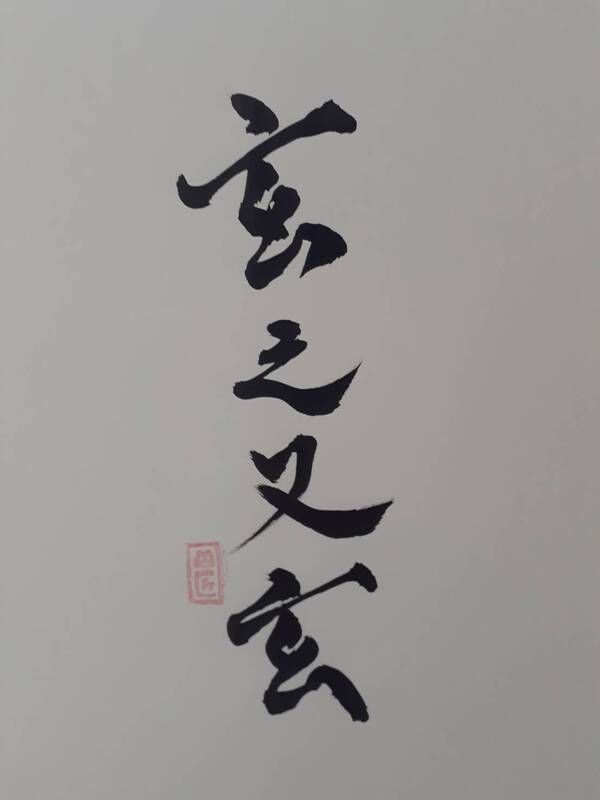 玄之又玄